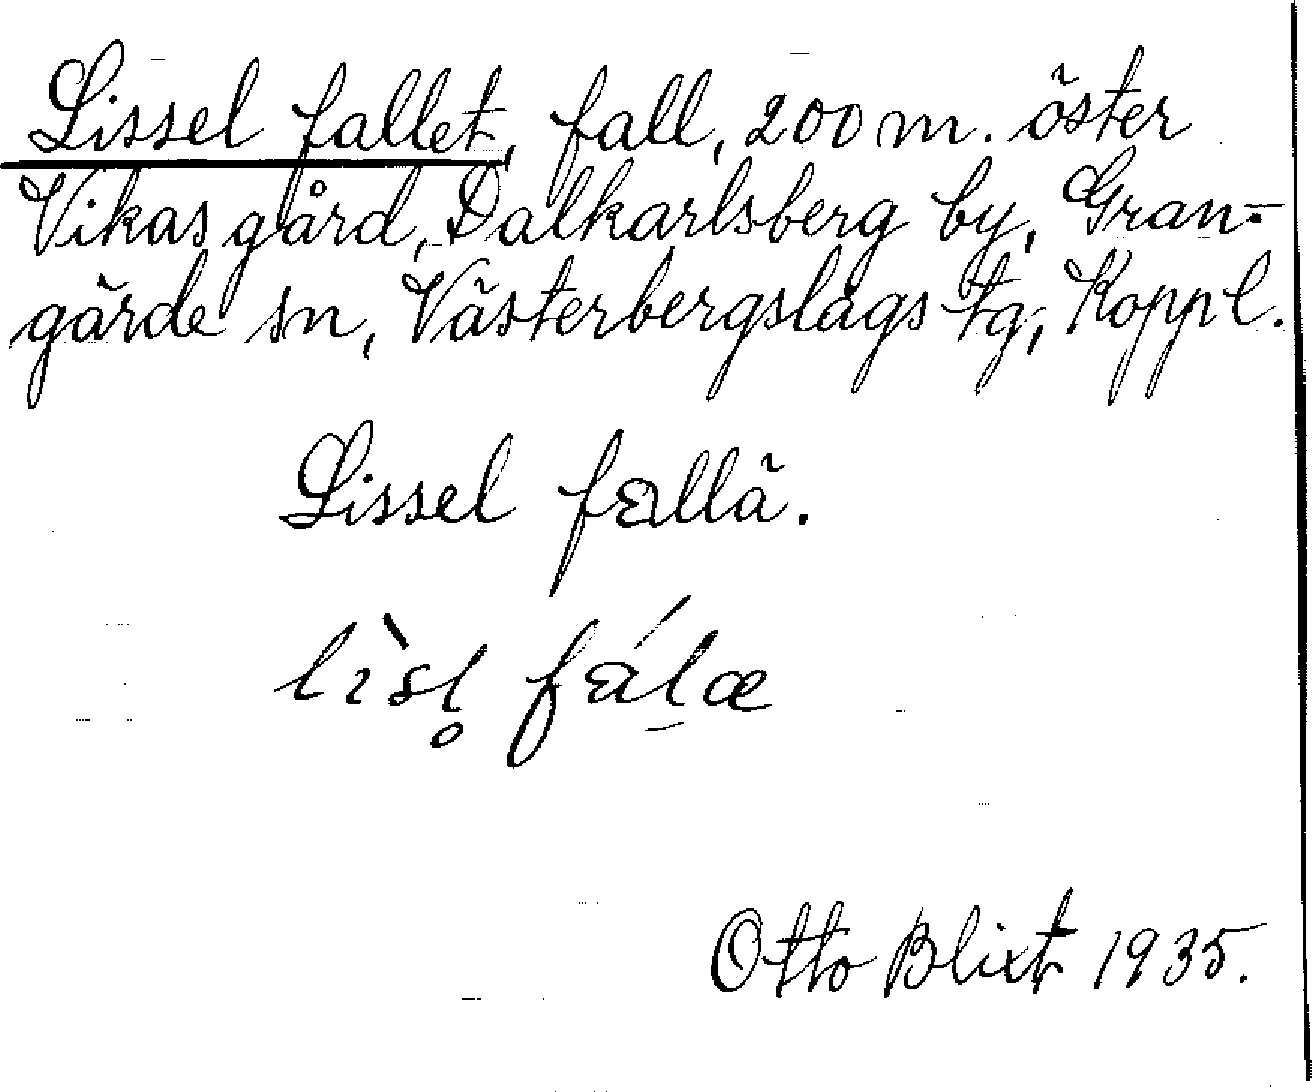 Lissel fallet, fall, 200 m. öster
Vikas gård, Dalkarlsberg by, Gran-
gärde sn, Västerbergslags tg, Koppl.
Lissel fallä.
lìsl̥ fál̠æ
Otto Blixt 1935.